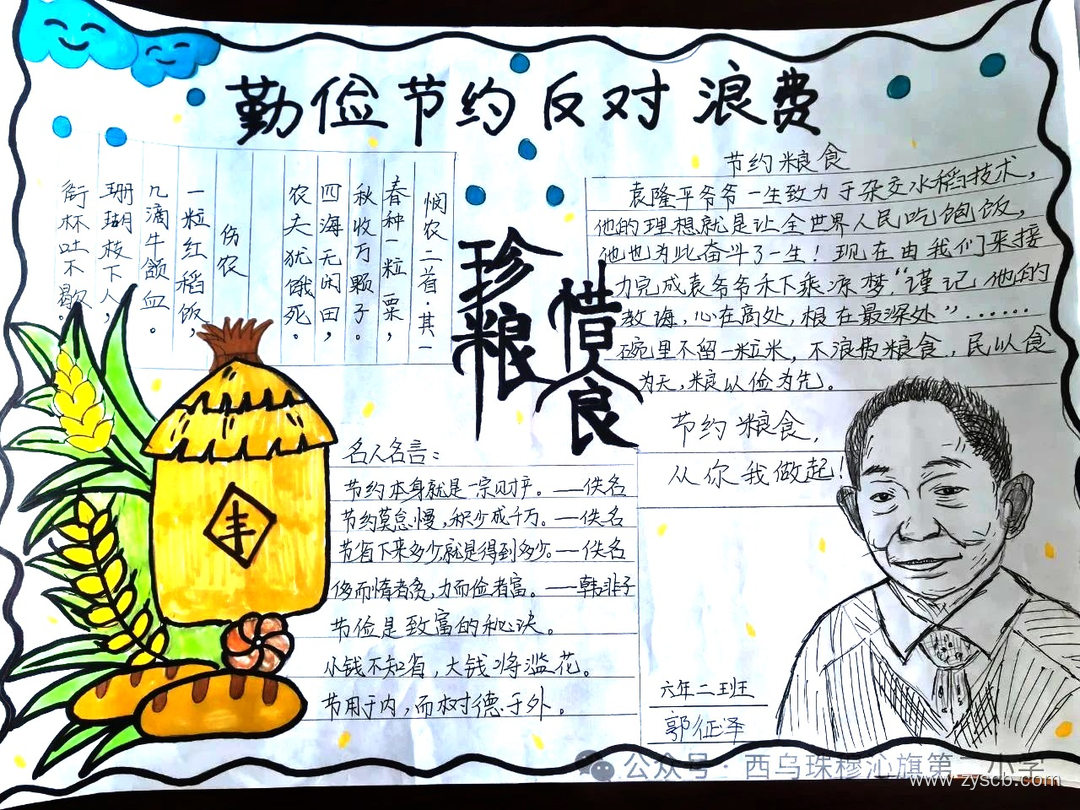 勤俭节约反对浪费
悯农二首·其一
春种一粒粟，
秋收万颗子。
四海无闲田，
农夫犹饿死。
伤农
一粒红稻饭，
几滴牛颔血。
珊瑚枝下人，
衔杯吐不歇。
珍惜
粮食
节约粮食
袁隆平爷爷一生致力于杂交水稻技术，
他的理想就是让全世界人民吃饱饭，
他也为此奋斗了一生！现在由我们来接
力完成袁爷爷禾下乘凉梦，“谨记他的
教诲，心在高处，根在最深处”……
碗里不留一粒米，不浪费粮食，民以食
为天，粮以俭为先。
节约粮食，
从你我做起！
名人名言：
节约本身就是一宗财产。——佚名
节约莫怠慢，积少成千万。——佚名
节省下来多少就是得到多少。——佚名
侈而惰者贫，力而俭者富。——韩非子
节俭是致富的秘诀。
小钱不知省，大钱将滥花。
节用于内，而树德于外。
丰
六年二班
郭征泽
公众号·西乌珠穆沁旗第二小学
www.zyscb.com